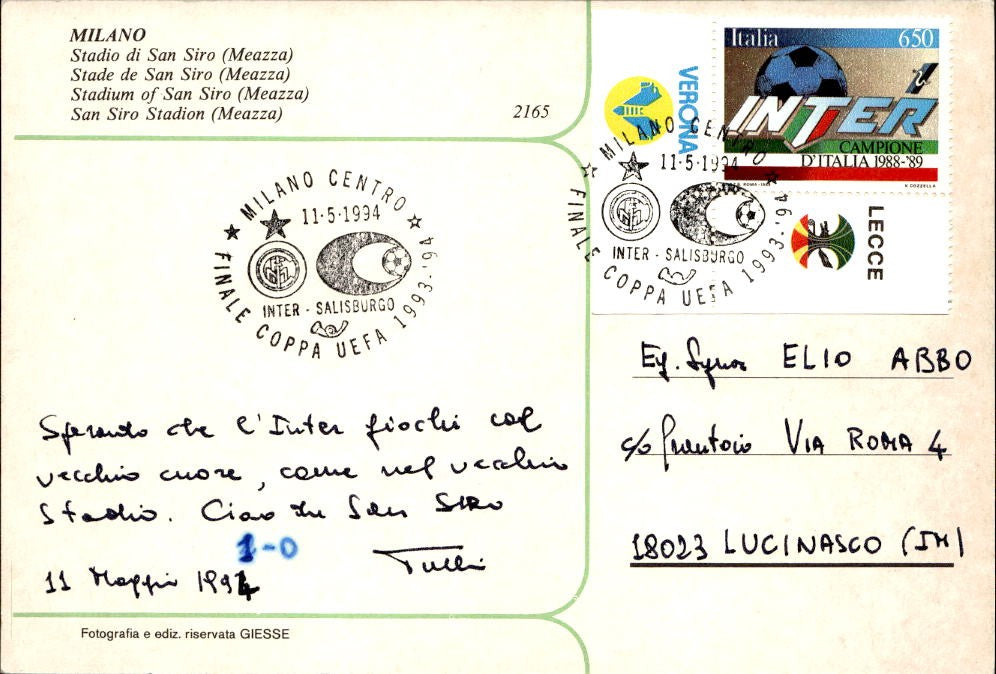 MILANO
Stadio di San Siro (Meazza)
Stade de San Siro (Meazza)
Stadium of San Siro (Meazza)
San Siro Stadion (Meazza)
2165
VERONA
Italia 650
INTER
CAMPIONE
D'ITALIA 1988-'89
LECCE
MILANO CENTRO
11·5·1994
INTER - SALISBURGO
FINALE COPPA UEFA 1993-'94
MILANO CENTRO
11·5·1994
INTER - SALISBURGO
FINALE COPPA UEFA 1993-'94
Sperando che l'Inter giochi col
vecchio cuore, come nel vecchio
stadio. Ciao da San Siro
1-0
11 Maggio 1994
Eg. Signor ELIO ABBO
c/o Frantoio VIA ROMA 4
18023 LUCINASCO (IM)
Fotografia e ediz. riservata GIESSE